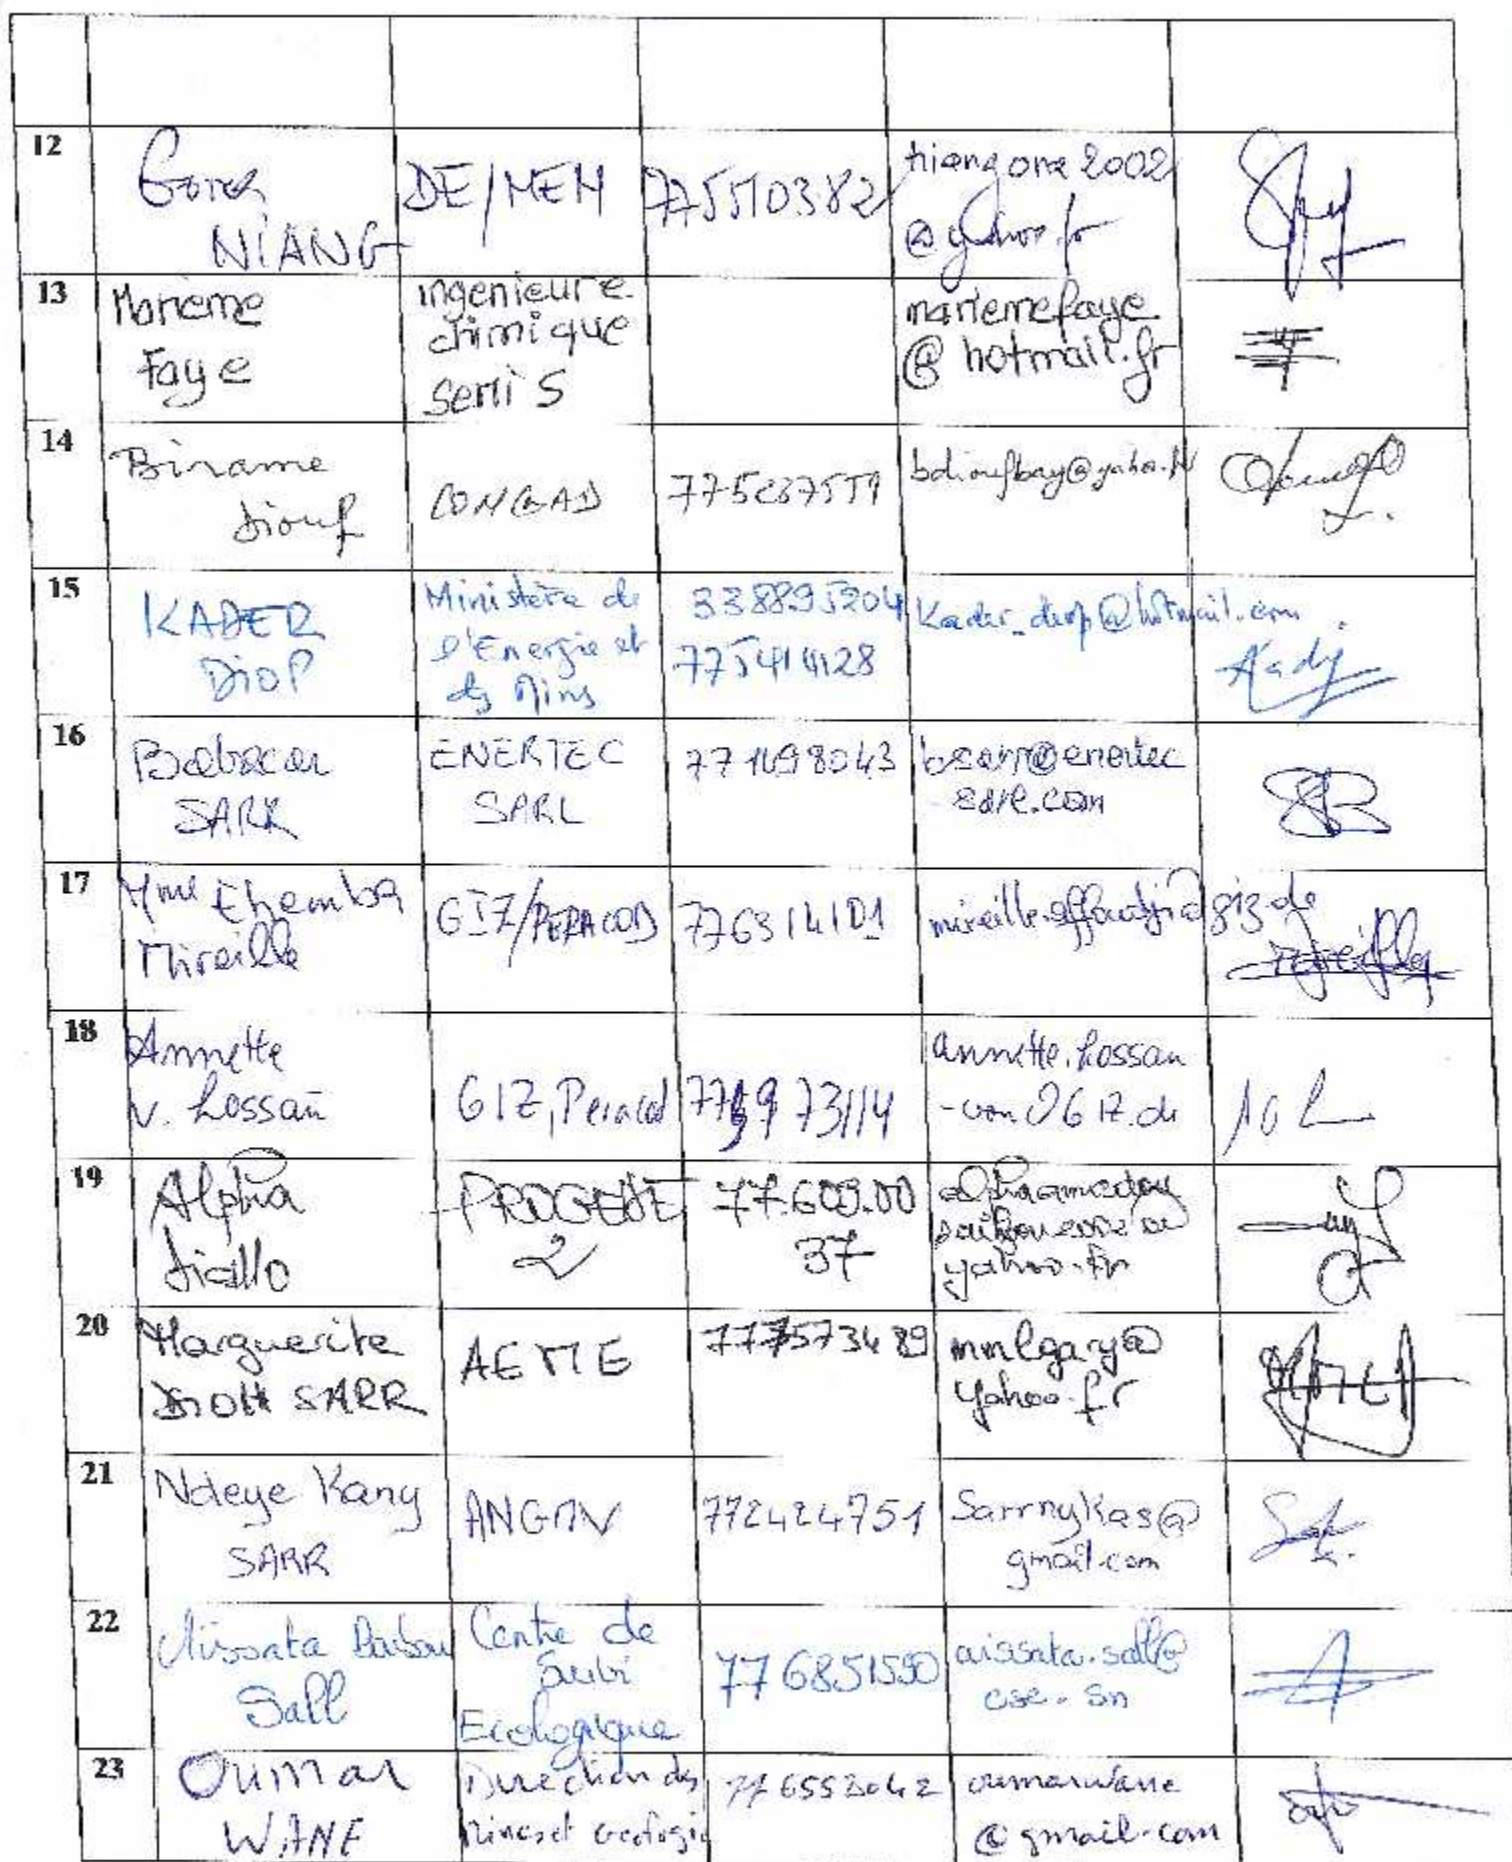 12
Gora
NIANG
DE/MEM
775510382
niangora2002
@yahoo.fr
13
Marieme
Faye
ingenieure
chimique
semis
mariemefaye
@hotmail.fr
14
Birame
Diouf
CONGAD
bdioufbay@yahoo.fr
15
KADER
DIOP
Ministère de
l'Energie et
des Mines
338895204
775414128
Kader_diop@hotmail.com
16
Babacar
SARR
ENERTEC
SARL
771498043
bsarr@enertec
sarl.com
17
Mme Ehemba
Mireille
GIZ/PERACOD
776314101
mireille.affoudji@giz.de
18
Annette
v. Lossau
GIZ, Peracod
73114
annette.lossau
-von@GIZ.de
19
Alpha
Diallo
PROGEDE
2
77.609.00
37
yahoo.fr
20
Marguerite
DIOH SARR
AEME
777573489
mmlgary@
yahoo.fr
21
Ndeye Kany
SARR
772424751
Sarrnykas@
gmail.com
22
Aissata
Sall
Centre de
Suivi
Ecologique
776851550
aissata.sall@
cse.sn
23
Oumar
WANE
Direction des
Mines et Geologie
776553042
oumarwane
@gmail.com